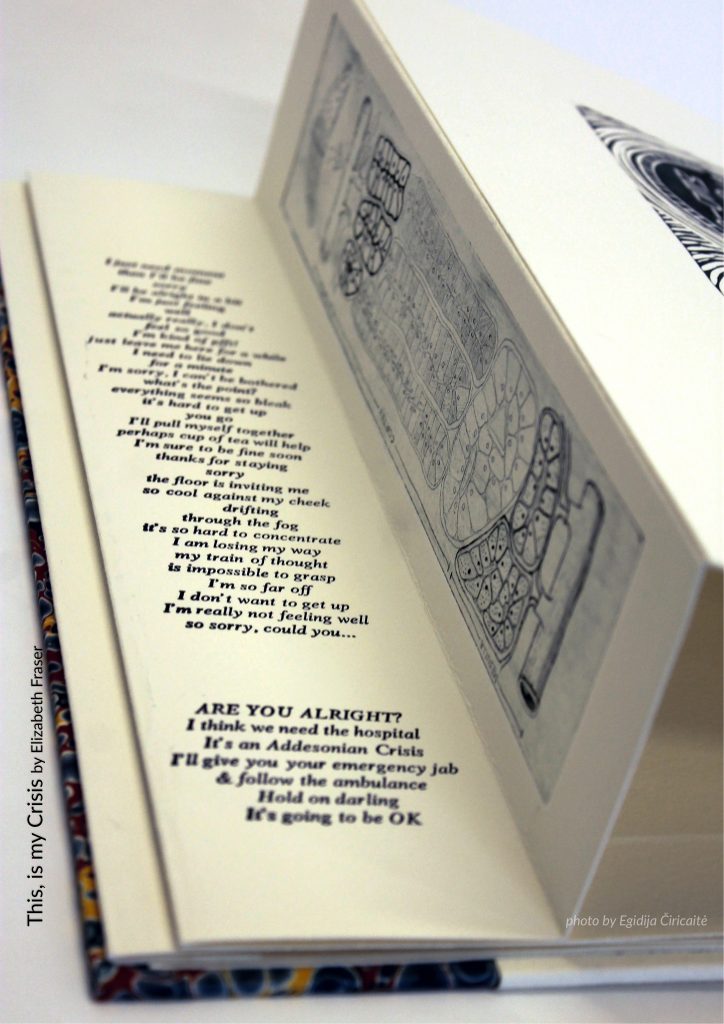 I just need
then I'll be fine
sorry
I'll be alright in a bit
I'm just feeling
well
actually really, I don't
feel so good
I'm kind of
just leave me here for a while
I need to lie down
for a minute
I'm sorry, I can't be bothered
what's the point?
everything seems so bleak
it's hard to get up
you go
I'll pull myself together
perhaps cup of tea will help
I'm sure to be fine soon
thanks for staying
sorry
the floor is inviting me
so cool against my cheek
drifting
through the fog
it's so hard to concentrate
I am losing my way
my train of thought
is impossible to grasp
I'm so far off
I don't want to get up
I'm really not feeling well
so sorry, could you...
ARE YOU ALRIGHT?
I think we need the hospital
It's an Addesonian Crisis
I'll give you your emergency jab
& follow the ambulance
Hold on darling
It's going to be OK
This, is my Crisis by Elizabeth Fraser
photo by Egidija Čiricaitė